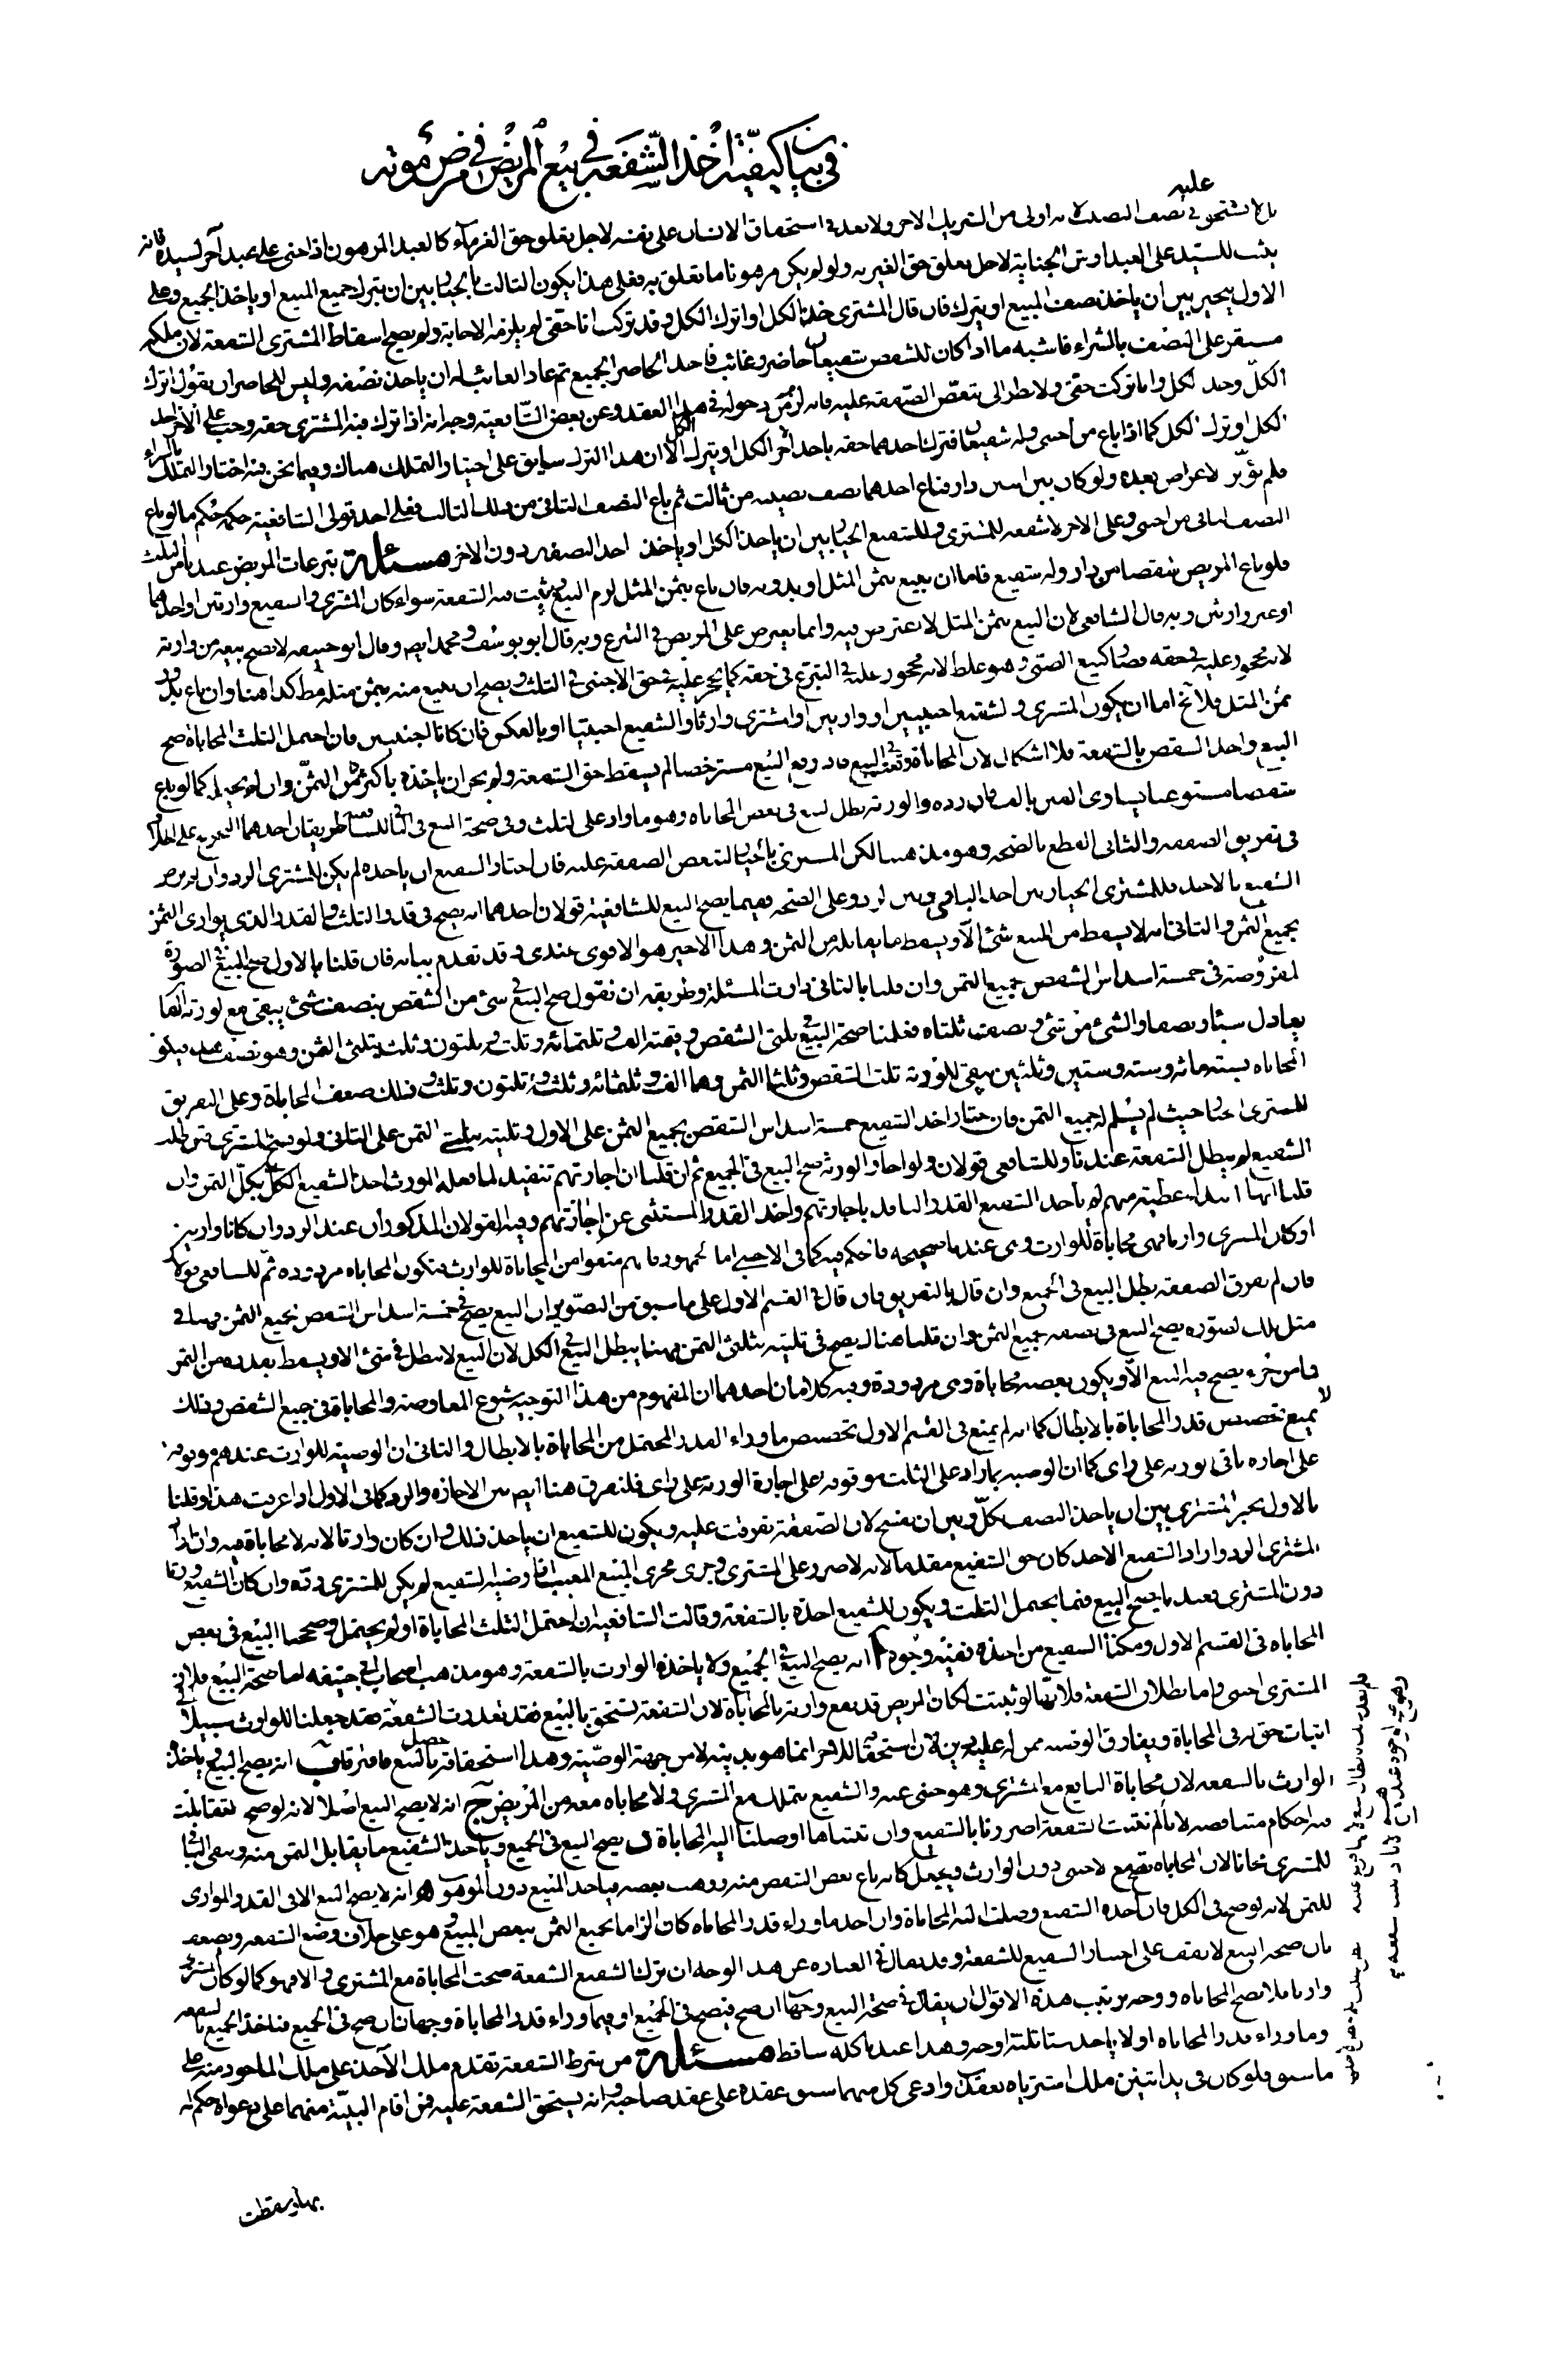 في بيان كيفية أخذ الشفعة في بيع المريض في مرض موته
عليه
بالاستحق في نصف النصف لانه اولى من الشريك الاخر ولا بعد في استحقاق الانسان على نفسه لاجل تعلق حق الغرماء كالعبد المرهون اذا جنى على عبد آخر لسيده فانه
يثبت للسيد على العبد ارش الجناية لاجل تعلق حق الغير به ولو لم يكن مرهونا ما تعلق به فعلى هذا يكون الثالث بالخيار بين ان يترك جميع المبيع او يأخذ الجميع وعلى
الاول يتخير بين ان يأخذ نصف المبيع او يترك فان قال المشتري خذ الكل او اترك الكل وقد تركت انا حقي لم يلزمه الاجابة ولم يصح اسقاط المشتري الشفعة لان ملكه
مستقر على النصف بالشراء فاشبه ما اذا كان للشقص شفيعان حاضر وغائب فاخذ الحاضر الجميع ثم عاد الغائب له ان يأخذ نصفه وليس للحاضر ان يقول اترك
الكل وخذ الكل وانا تركت حقي ولا نظر الى تبعض الصفقة عليه فانه لزم من دخوله في هذا العقد وعن بعض الشافعية وجه انه اذا ترك فيه المشتري حقه وجب على الآخر اخذ
الكل او ترك الكل كما اذا باع من اجنبي وله شفيعان فترك احدهما حقه يأخذ الآخر الكل او يترك الكل الا ان هذا الترك سابق على اختيار التملك هناك وفيما نحن فيه اختار التملك بالشراء
فلم يؤثر الاعراض بعده ولو كان بين اثنين دار فباع احدهما نصف نصيبه من ثالث ثم باع النصف الثاني من ذلك الثالث فعلى احد قولي الشافعية حكمه حكم ما لو باع
النصف الثاني من اجنبي وعلى الاخر لا شفعة للمشتري وللشفيع الخيار بين ان يأخذ الكل او يأخذ احد النصفين دون الاخر مسئلة تبرعات المريض عندنا من الثلث
فلو باع المريض شقصا من دار وله شفيع فاما ان يبيع بثمن المثل او بدونه فان باع بثمن المثل لزم البيع وثبت فيه الشفعة سواء كان المشتري والشفيع وارثين او احدهما
او غير وارثين وبه قال الشافعي لان البيع بثمن المثل لا يعترض فيه وانما يعترض على المريض في التبرع وبه قال ابو يوسف ومحمد ايضا وقال ابو حنيفة لا يصح بيعه من وارثه
لانه محجور عليه في حقه فصار كبيع الصبي وهو غلط لانه محجور عليه في التبرع في حقه كما يحجر عليه في حق الاجنبي في الثلث ويصح ان يبيع منه بثمن مثله مطلقا كذا هنا وان باع بدون
ثمن المثل فلا يخ اما ان يكون المشتري والشفيع اجنبيين او وارثين او المشتري وارثا والشفيع اجنبيا او بالعكس فان كانا اجنبيين فان احتمل الثلث المحاباة صح
البيع واخذ الشقص بالشفعة فلا اشكال لان المحاباة وقعت في البيع فاذا وقع البيع مسترخصا لم يسقط حق الشفعة ولم يجز ان يأخذه باكثر من الثمن وان لم يحتمله كما لو باع
شقصا مستوعبا يساوي الفين بالف فان رده الورثة بطل البيع في بعض المحاباة وهو ما زاد على الثلث وفي صحة البيع في الباقي للشافعية طريقان احدهما التخريج على الخلاف
في تفريق الصفقة والثاني القطع بالصحة وهو مذهبنا لكن المشتري بالخيار لتبعض الصفقة عليه فان اختار الشفيع ان يأخذه لم يكن للمشتري الرد وان لم يرض
الشفيع بالاخذ فللمشتري الخيار بين اخذ الباقي وبين الرد وعلى الصحة فيما يصح البيع للشافعية قولان احدهما انه يصح في قدر الثلث والقدر الذي يوازي الثمن
بجميع الثمن والثاني انه لا يسقط من المبيع شئ الا ويسقط ما يقابله من الثمن وهذا الاخير هو الاقوى عندي وقد تقدم بيانه فان قلنا بالاول صح البيع في الصورة
المفروضة في خمسة اسداس الشقص بجميع الثمن وان قلنا بالثاني دارت المسئلة وطريقه ان نقول صح البيع في شئ من الشقص بنصف شئ يبقى مع الورثة الفان
يعادل شيئا ونصفا والشئ من شئ ونصف ثلثاه فعلمنا صحة البيع في ثلثي الشقص وقيمته الف وثلثمائة وثلثة وثلثون وثلث بثلثي الثمن وهو نصف هذا فيكون
المحاباة بستمائة وستة وستين وثلثين يبقى للورثة ثلث الشقص وثلثا الثمن وهما الف وثلثمائة وثلثة وثلثون وثلث وذلك ضعف المحاباة وعلى التفريق
للمشتري الخيار حيث لم يسلم له جميع الثمن فان اختار اخذ الشفيع خمسة اسداس الشقص بجميع الثمن على الاول وثلثيه بثلثي الثمن على الثاني ولو فسخ المشتري قبل طلب
الشفيع لم تبطل الشفعة عندنا وللشافعي قولان ولو اجاز الورثة صح البيع في الجميع ثم ان قلنا ان اجازتهم تنفيذ لما فعله المورث اخذ الشفيع الكل بكل الثمن وان
قلنا انها ابتداء عطية منهم لم يأخذ الشفيع القدر النافذ باجازتهم واخذ القدر المستثنى عن اجازتهم وفيه القولان المذكوران عند الرد وان كانا وارثين
او كان المشتري وارثا فهي محاباة للوارث وهي عندنا صحيحة فالحكم فيه كما في الاجنبي اما الجمهور فانهم منعوا من المحاباة للوارث فتكون المحاباة مردودة ثم للشافعي قولان
فان لم نفرق الصفقة بطل البيع في الجميع وان قال بالتفريق فان قال في القسم الاول على ما سبق من التصوير ان البيع يصح في خمسة اسداس الشقص بجميع الثمن فهنا في
مثل تلك الصورة يصح البيع في نصفه بجميع الثمن وان قلنا هناك يصح في ثلثيه بثلثي الثمن فهنا يبطل البيع في الكل لان البيع لا يبطل في شئ الا ويسقط بقدره من الثمن
فما من جزء يصح فيه البيع الا ويكون بعضه محاباة وهي مردودة وفيه كلامان احدهما ان المفهوم من هذا التوجيه شيوع المعاوضة والمحاباة في جميع الشقص وذلك
لا يمنع تخصيص قدر المحاباة بالابطال كما انه لم يمنع في القسم الاول تخصيص ما وراء القدر المحتمل من المحاباة بالابطال والثاني ان الوصية للوارث عندهم موقوفة
على اجازة باقي الورثة على رأي كما ان الوصية بما زاد على الثلث موقوفة على اجازة الورثة على رأي فلنفرق هنا ايضا بين الاجازة والرد كما في الاول اذا عرفت هذا وقلنا
بالاول يخير المشتري بين ان يأخذ النصف بكل وبين ان يفسخ لان الصفقة تفرقت عليه ويكون للشفيع ان يأخذ ذلك وان كان وارثا لانه لا محاباة فيه وان اراد
المشتري الرد واراد الشفيع الاخذ كان حق الشفيع مقدما لانه لا ضرر على المشتري وجرى مجرى المبيع المعيب اذا رضيه الشفيع لم يكن للمشتري رده وان كان الشفيع وارثا
دون المشتري فعندنا يصح البيع فيما يحتمل الثلث ويكون للشفيع اخذه بالشفعة وقالت الشافعية ان احتمل الثلث المحاباة او لم يحتمل وصححنا البيع في بعض
المحاباة في القسم الاول ومكنا الشفيع من اخذه ففيه وجوه ا انه يصح البيع في الجميع ولا يأخذه الوارث بالشفعة وهو مذهب اصحاب ابي حنيفة اما صحة البيع فلان
المشتري اجنبي واما بطلان الشفعة فلانها لو ثبتت لكان المريض قد نفع وارثه بالمحاباة لان الشفعة تستحق بالبيع فقد تعذرت الشفعة فقد جعلنا للوارث سبيلا الى
اثبات حق له في المحاباة ويفارق الوصية ممن له عليه دين لان استحقاقه للاخذ انما هو بدينه لا من جهة الوصية وهذا استحقاقه حصل بالبيع فافترقا ب انه يصح البيع ويأخذ
الوارث بالشفعة لان محاباة البايع مع المشتري وهو اجنبي عنه والشفيع يتملك مع المشتري ولا محاباة معه من المريض ج انه لا يصح البيع اصلا لانه لو صح لتقابلت
فيه احكام متناقضة لانا ان لم نثبت الشفعة اضررنا بالشفيع وان نثبتها اوصلنا اليه المحاباة د يصح البيع في الجميع ويأخذ الشفيع ما يقابل الثمن منه ويبقى الباقي
للمشتري مجانا لان المحاباة تصح مع الاجنبي دون الوارث ويجعل كانه باع بعض الشقص منه ووهب بعضه فيأخذ المبيع دون الموهوب ه انه لا يصح البيع الا في القدر الموازي
للثمن لانه لو صح في الكل فان اخذه الشفيع وصلت اليه المحاباة وان اخذ ما وراء قدر المحاباة كان الزاما بجميع الثمن ببعض المبيع وهو على خلاف وضع الشفعة ويضعف
بان صحة البيع لا يقف على اختيار الشفيع للشفعة وقد يقال في العبارة عن هذا الوجه ان ترك الشفيع الشفعة صحت المحاباة مع المشتري والا فهو كما لو كان المشتري
وارثا فلا تصح المحاباة ووجه ترتيب هذه الاقوال ان يقال في صحة البيع وجهان ان صح فيصح في الجميع او فيما وراء قدر المحاباة وجهان ان صح في الجميع فيأخذ الجميع بالشفعة
وما وراء قدر المحاباة او لا يأخذ شيئا ثلثة اوجه وهذا عندنا كله ساقط مسئلة من شرط الشفعة تقدم ملك الآخذ على ملك المأخوذ منه على
ما سبق فلو كان في يد اثنين ملك اشترياه بعقدين وادعى كل منهما سبق عقده على عقد صاحبه وانه يستحق الشفعة عليه فمن اقام البينة منهما على دعواه حكم له
بها وسقطت